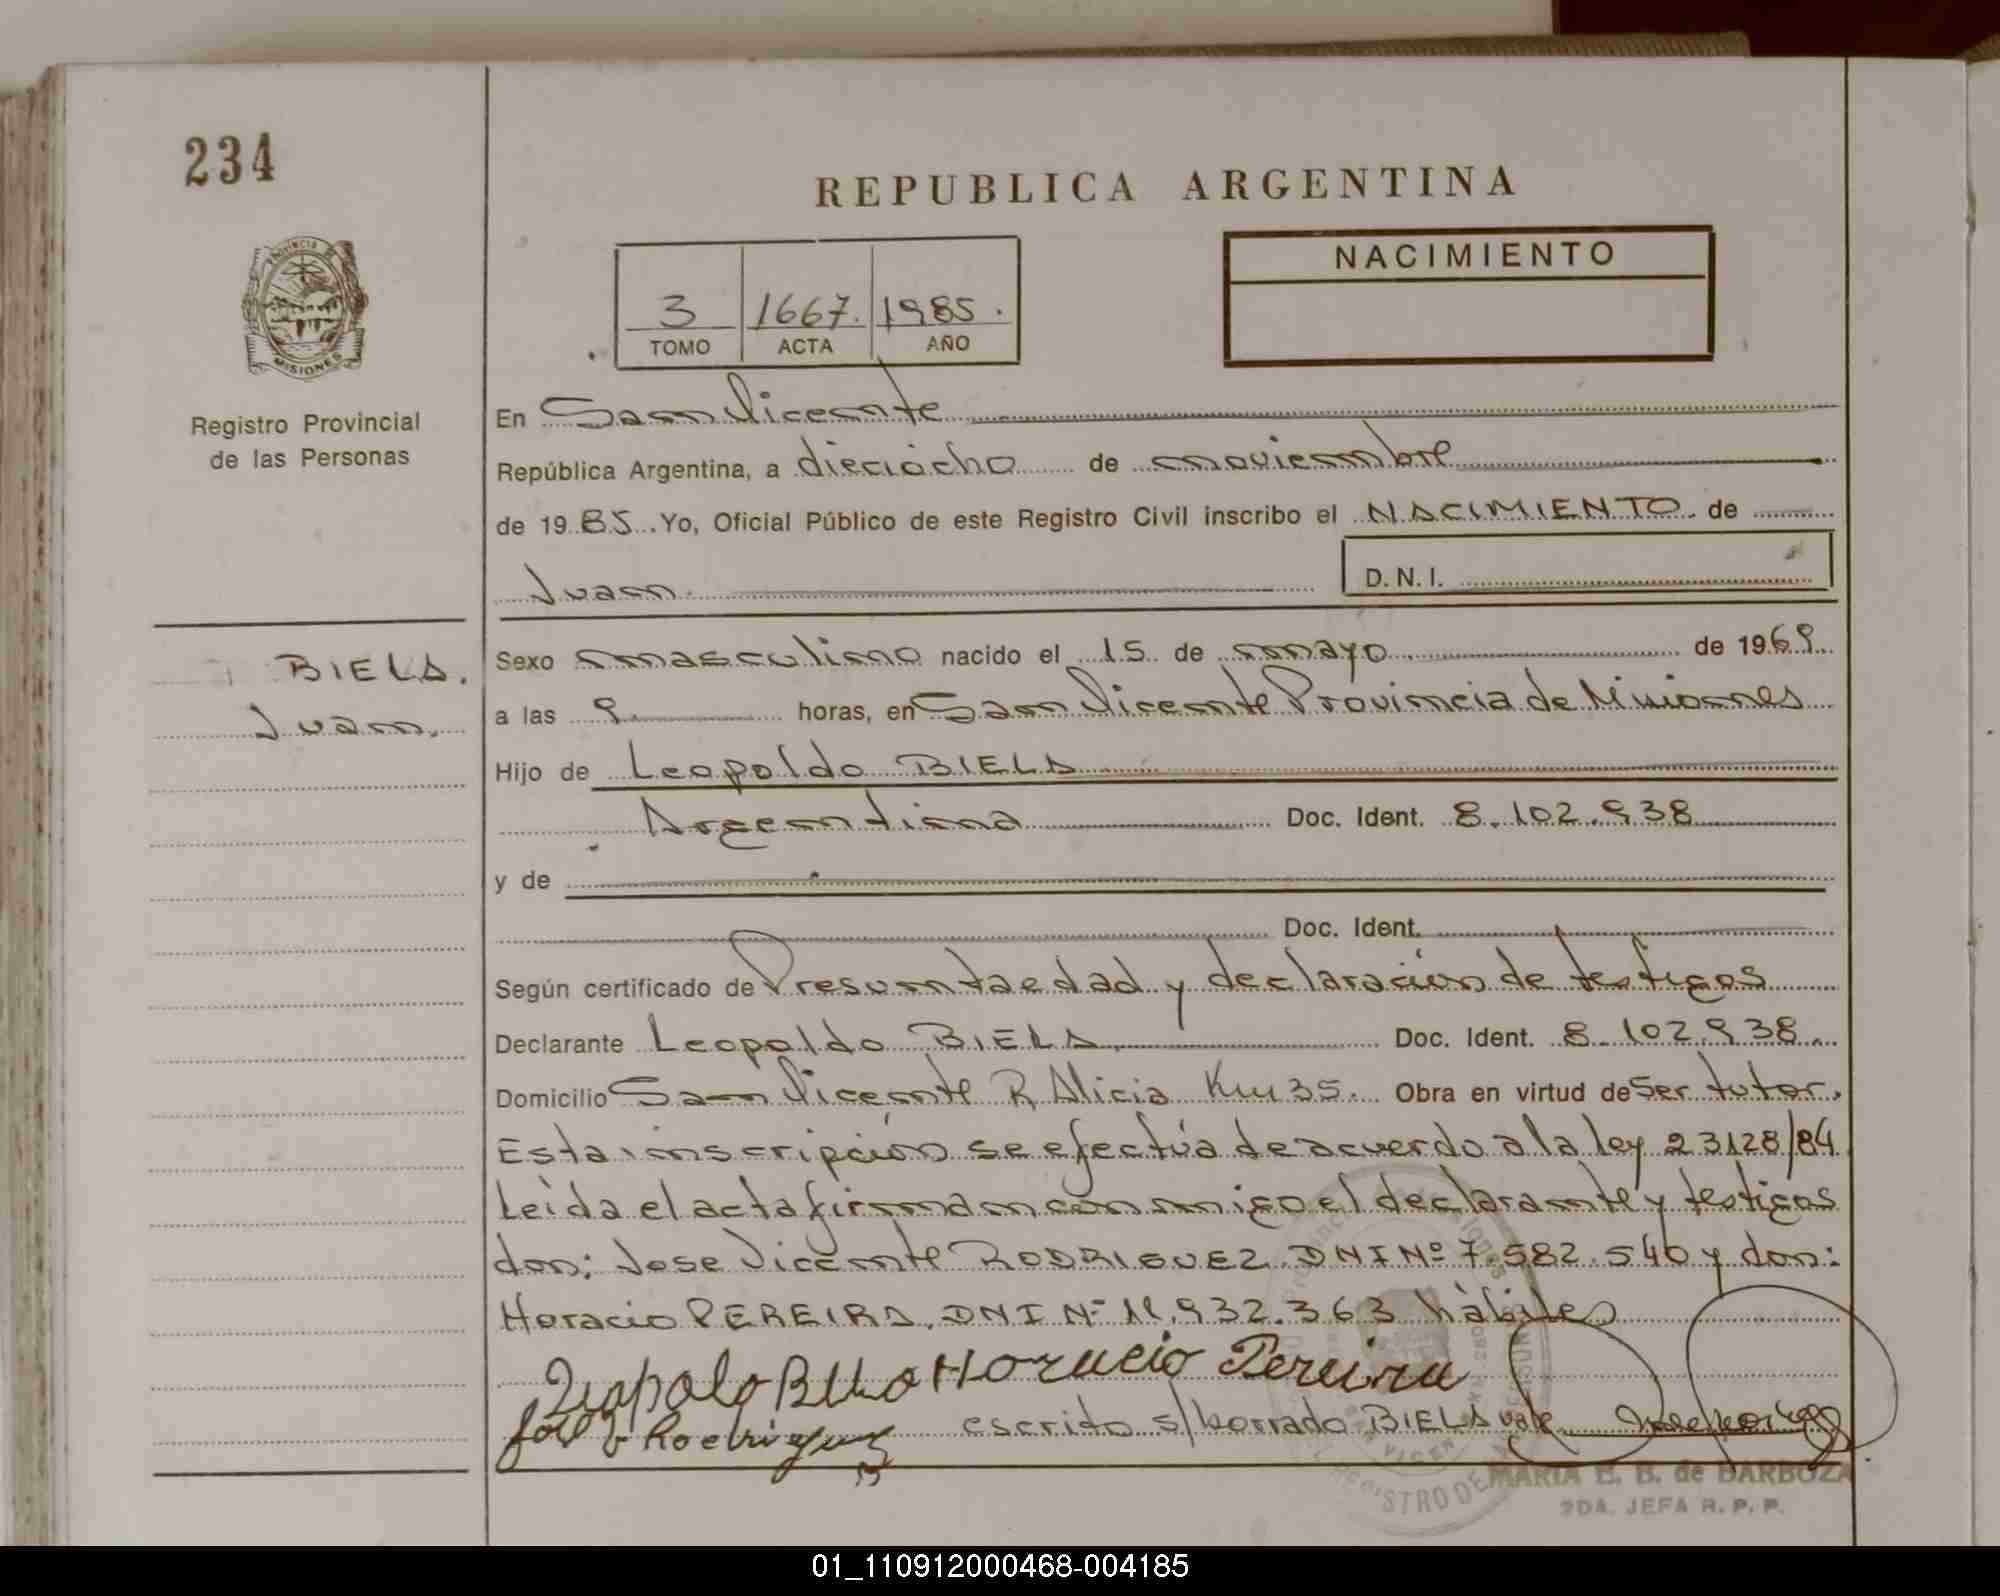 234
REPUBLICA ARGENTINA
NACIMIENTO
3 1667. 1985.
TOMO ACTA AÑO
PROVINCIA DE
MISIONES
Registro Provincial
de las Personas
En San Vicente
República Argentina, a dieciocho de noviembre
de 19 85 Yo, Oficial Público de este Registro Civil inscribo el NACIMIENTO de
Juan. D.N.I.
BIELA.
Juan.
Sexo masculino nacido el 15 de mayo de 1969
a las 9 horas, en San Vicente Provincia de Misiones
Hijo de Leopoldo BIELA
Argentina Doc. Ident. 8.102.938
y de
Doc. Ident.
Según certificado de Presunta edad y declaración de testigos
Declarante Leopoldo BIELA Doc. Ident. 8.102.938.
Domicilio San Vicente R. Alicia Km 35. Obra en virtud de Ser tutor.
Esta inscripción se efectúa de acuerdo a la ley 23128/84
Leída el acta firman conmigo el declarante y testigos
don: Jose Vicente RODRIGUEZ. DNI Nº 7.582.540 y don:
Horacio PEREIRA. DNI Nº 11.932.363 hábiles
Horacio Pereira
José V Rodriguez escrito s/borrado BIELA vale
MARIA E. B. de BARBOZA
2DA. JEFA R. P. P.
01_110912000468-004185